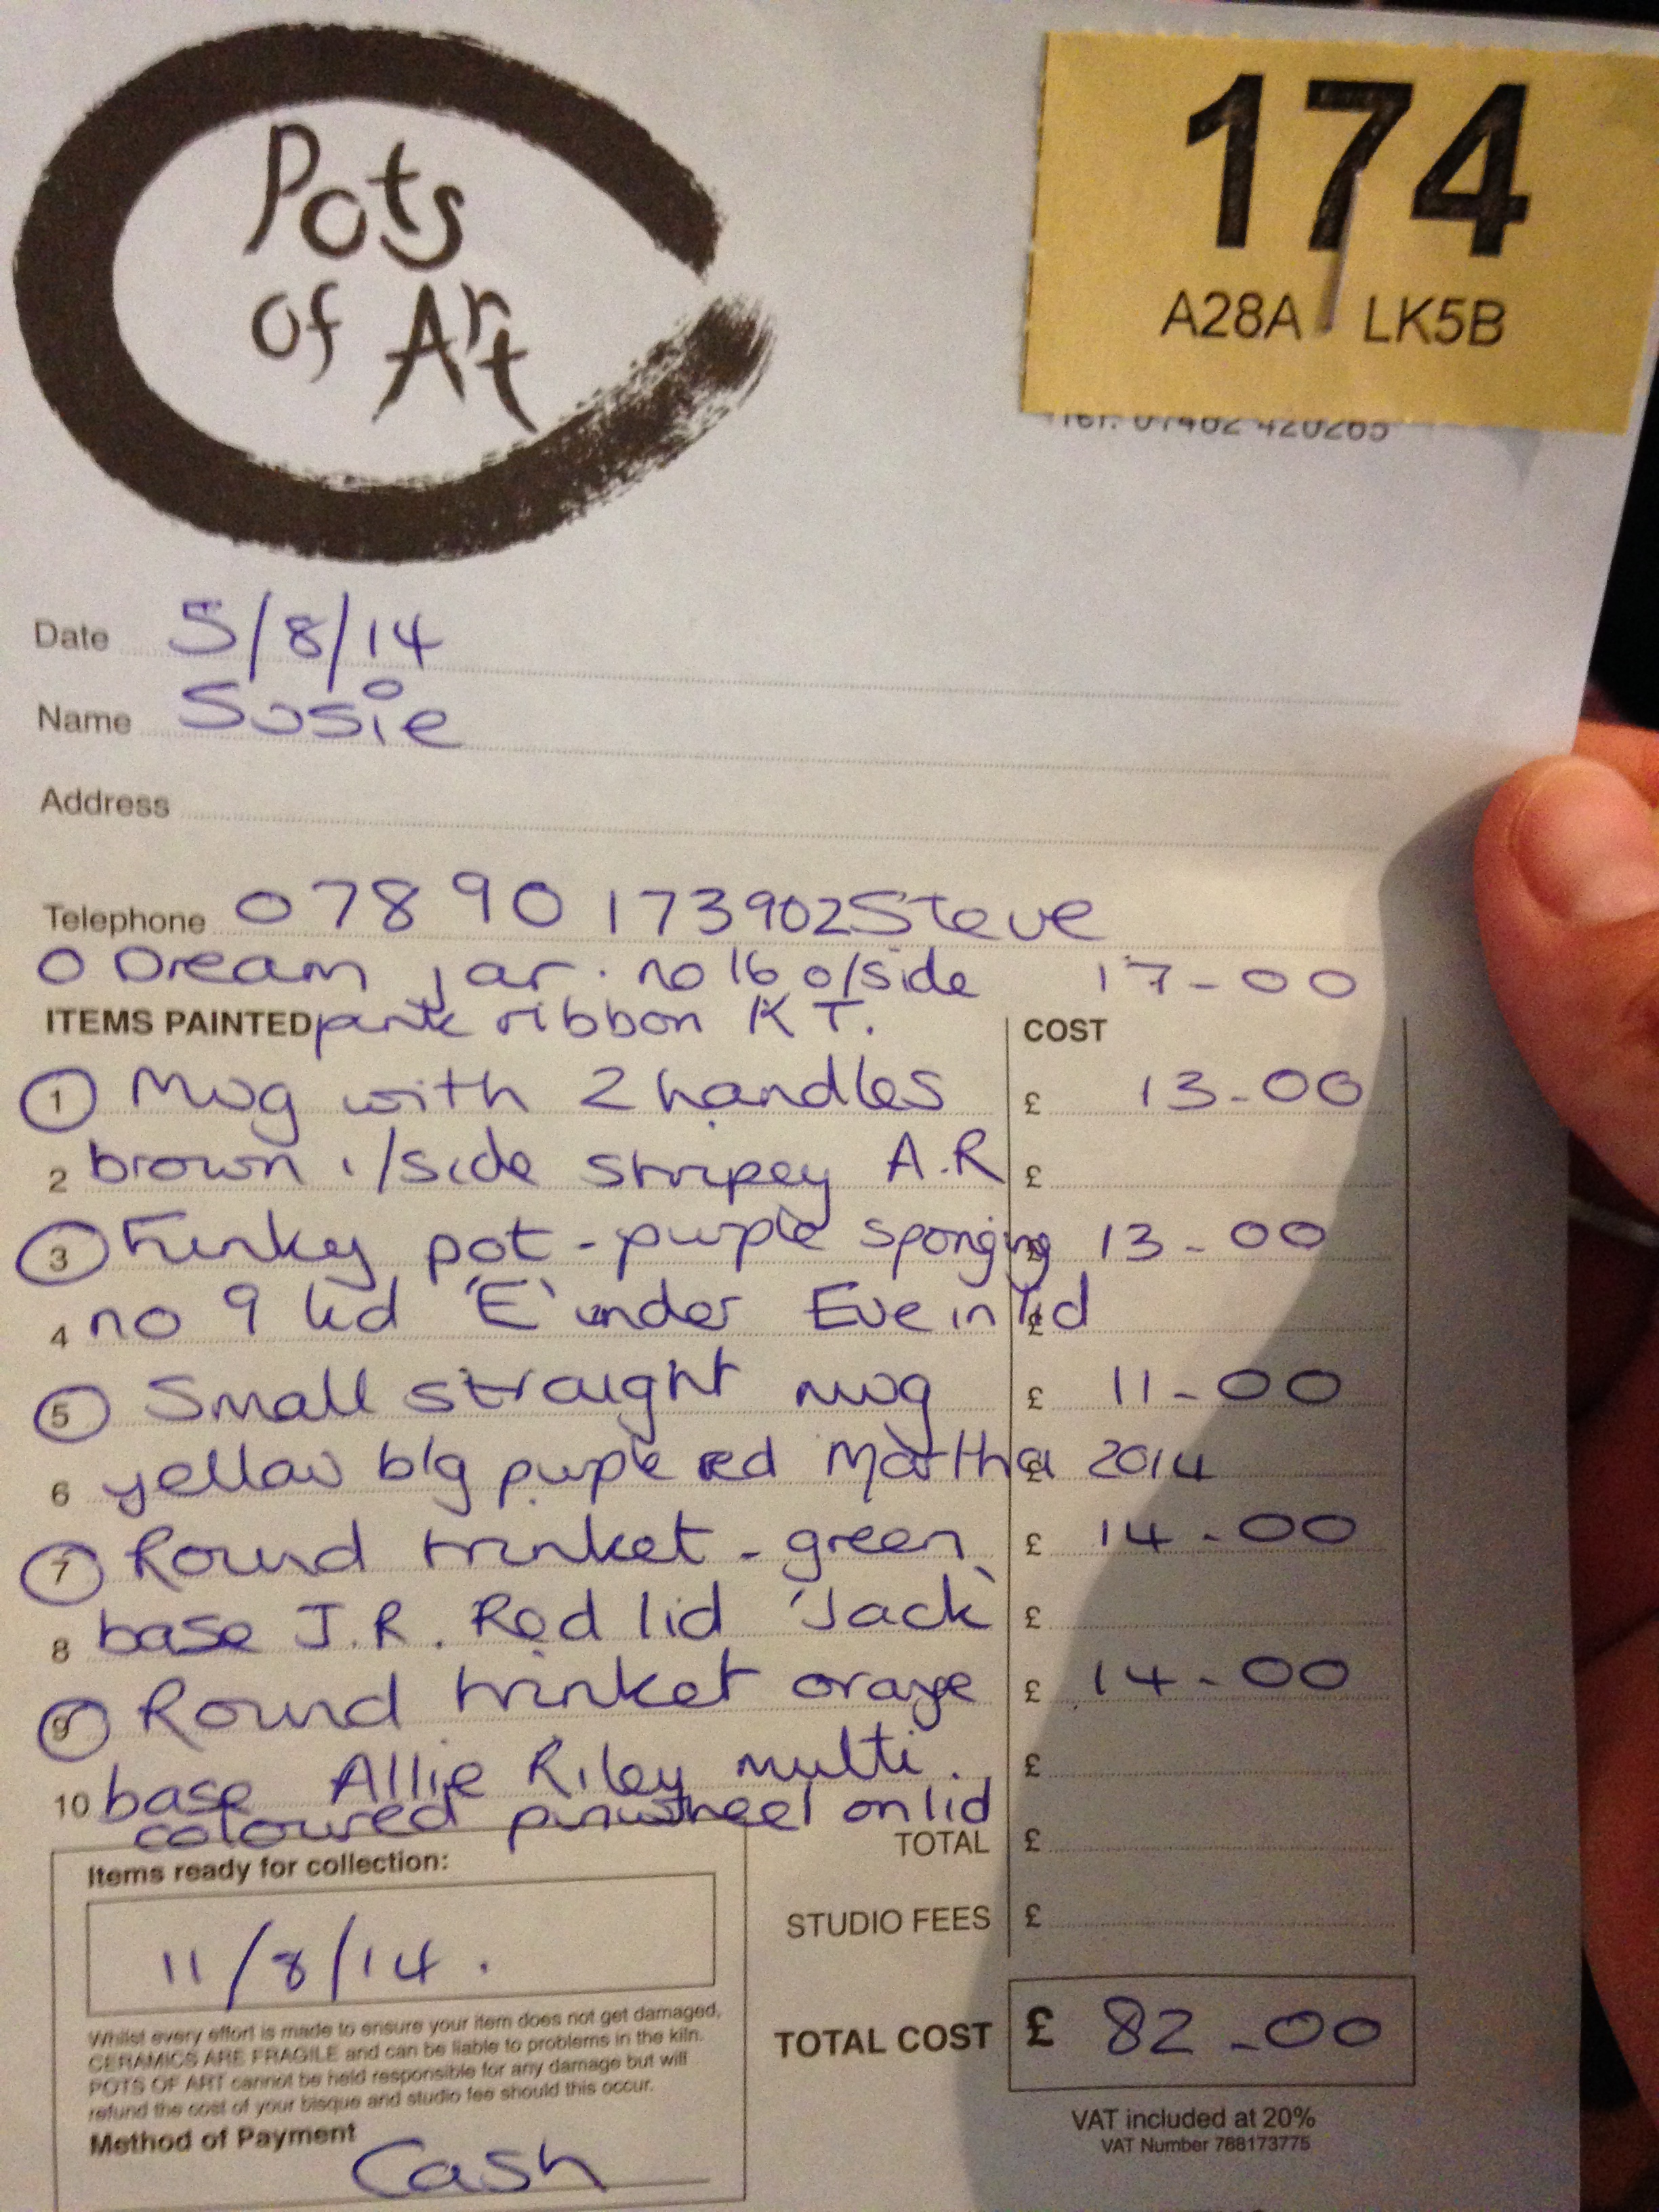 Pots
of Art
174
A28A LK5B
Tel: 01462 420265
Date 5/8/14
Name Susie
Address
Telephone 07890 173902 Steve
O Dream jar. no 16 o/side 17-00
ITEMS PAINTED pink ribbon KT. COST
1 Mug with 2 handles £ 13-00
2 brown i/side stripey A.R £
3 Funky pot - purple sponging £ 13-00
4 no 9 lid 'E' under Eve in lid £
5 Small straight mug £ 11-00
6 yellow b/g purple red Martha £ 2014
7 Round trinket - green £ 14-00
8 base J.R. Red lid 'Jack' £
9 Round trinket orange £ 14-00
10 base Allie Riley multi. £
coloured pinwheel on lid
TOTAL £
Items ready for collection:
11/8/14.
STUDIO FEES £
TOTAL COST £ 82-00
Whilst every effort is made to ensure your item does not get damaged,
CERAMICS ARE FRAGILE and can be liable to problems in the kiln.
POTS OF ART cannot be held responsible for any damage but will
refund the cost of your bisque and studio fee should this occur.
Method of Payment
Cash
VAT included at 20%
VAT Number 788173775